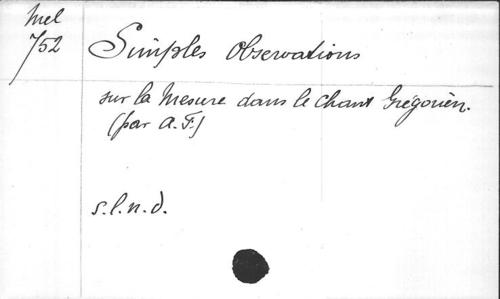 Mel
752
Simples Observations
sur la Mesure dans le Chant Grégorien.
(par A.F.)
s.l.n.d.